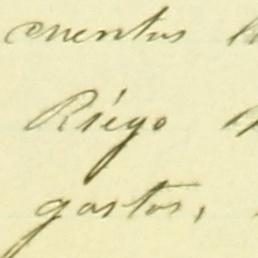 cuentas
Riego
gastos,